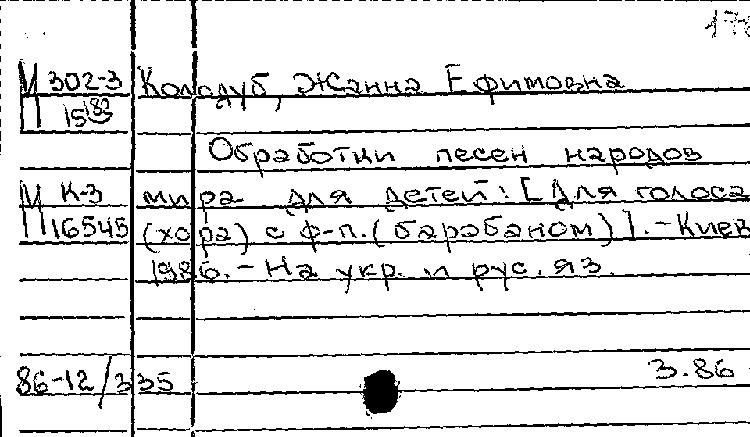 М 302-3 Колодуб, Жанна Ефимовна
П 15183
Обработки песен народов
М К-3 мира для детей: [Для голоса
П 16545 (хора) с ф-п. (барабаном)]. - Киев
1986. - На укр. и рус. яз.
86-12/335 3.86